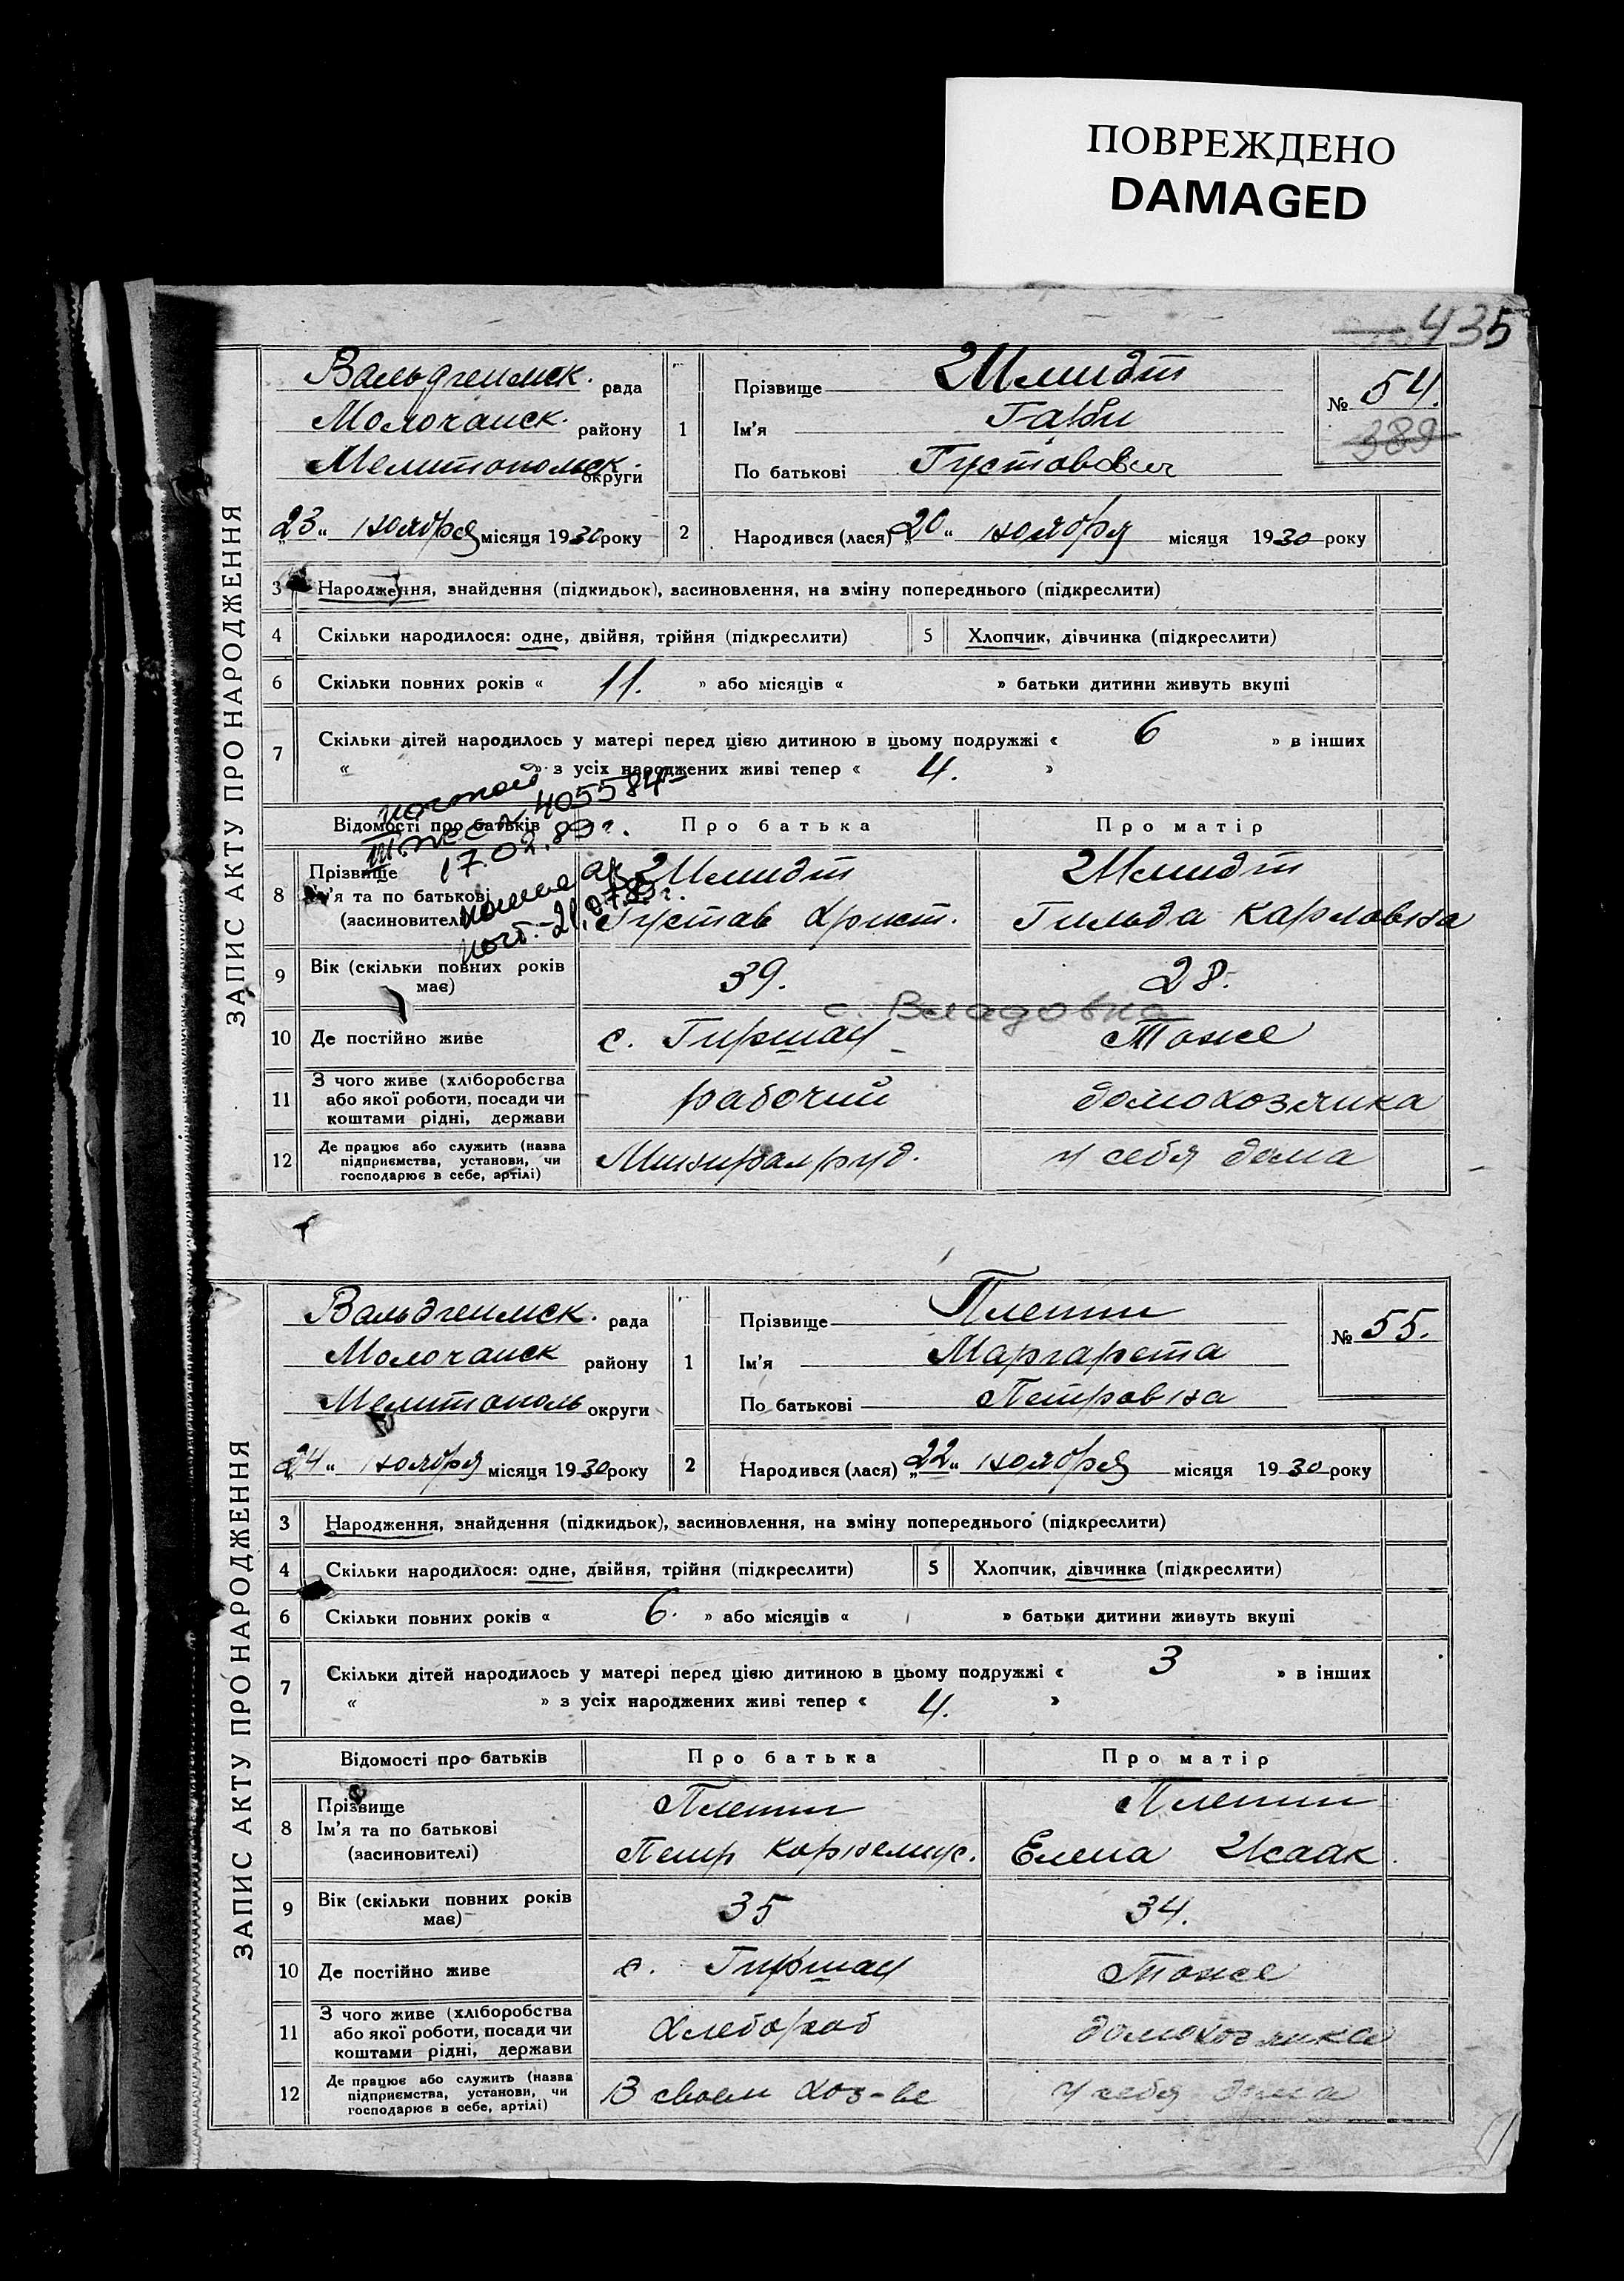 ПОВРЕЖДЕНО
DAMAGED
435
ЗАПИС АКТУ ПРО НАРОДЖЕННЯ
Вальдгеимск. рада
Молочанск. району
Мелитопольск. округи
„23“ ноября місяця 1930 року
1
Прізвище Шмидт
Ім'я Гарри
По батькові Густавович
№ 54.
389
2
Народився (лася) „20“ ноября місяця 1930 року
3 Народження, знайдення (підкидьок), засиновлення, на зміну попереднього (підкреслити)
4 Скільки народилося: одне, двійня, трійня (підкреслити) 5 Хлопчик, дівчинка (підкреслити)
6 Скільки повних років « 11. » або місяців « » батьки дитини живуть вкупі
7 Скільки дітей народилось у матері перед цією дитиною в цьому подружжі « 6 » в інших
« » з усіх народжених живі тепер « 4. »
405584
17.02.80 г.
Відомості про батьків Про батька Про матір
8 Прізвище
Ім'я та по батькові
(засновителі)
Шмидт
Густав Христ.
Шмидт
Гильда Карловна
9 Вік (скільки повних років має) 39. 28.
с. Владовка
10 Де постійно живе с. Гиршау Тоже
11 З чого живе (хліборобства
або якої роботи, посади чи
коштами рідні, держави
рабочий домохозяика
12 Де працює або служить (назва
підприємства, установи, чи
господарює в себе, артілі)
у себя дома
ЗАПИС АКТУ ПРО НАРОДЖЕННЯ
Вальдгеимск. рада
Молочанск району
Мелитополь округи
„24“ ноября місяця 1930 року
1
Прізвище Плетт
Ім'я Маргарета
По батькові Петровна
№ 55.
2
Народився (лася) „22“ ноября місяця 1930 року
3 Народження, знайдення (підкидьок), засиновлення, на зміну попереднього (підкреслити)
4 Скільки народилося: одне, двійня, трійня (підкреслити) 5 Хлопчик, дівчинка (підкреслити)
6 Скільки повних років « 6. » або місяців « » батьки дитини живуть вкупі
7 Скільки дітей народилось у матері перед цією дитиною в цьому подружжі « 3 » в інших
« » з усіх народжених живі тепер « 4. »
Відомості про батьків Про батька Про матір
8 Прізвище
Ім'я та по батькові
(засиновителі)
Плетт
Петр Корнелиус.
Плетт
Елена Исаак.
9 Вік (скільки повних років має) 35 34.
10 Де постійно живе с. Гиршау Тоже
11 З чого живе (хліборобства
або якої роботи, посади чи
коштами рідні, держави
Хлебороб домохозяика
12 Де працює або служить (назва
підприємства, установи, чи
господарює в себе, артілі)
В своем хоз-ве у себя дома